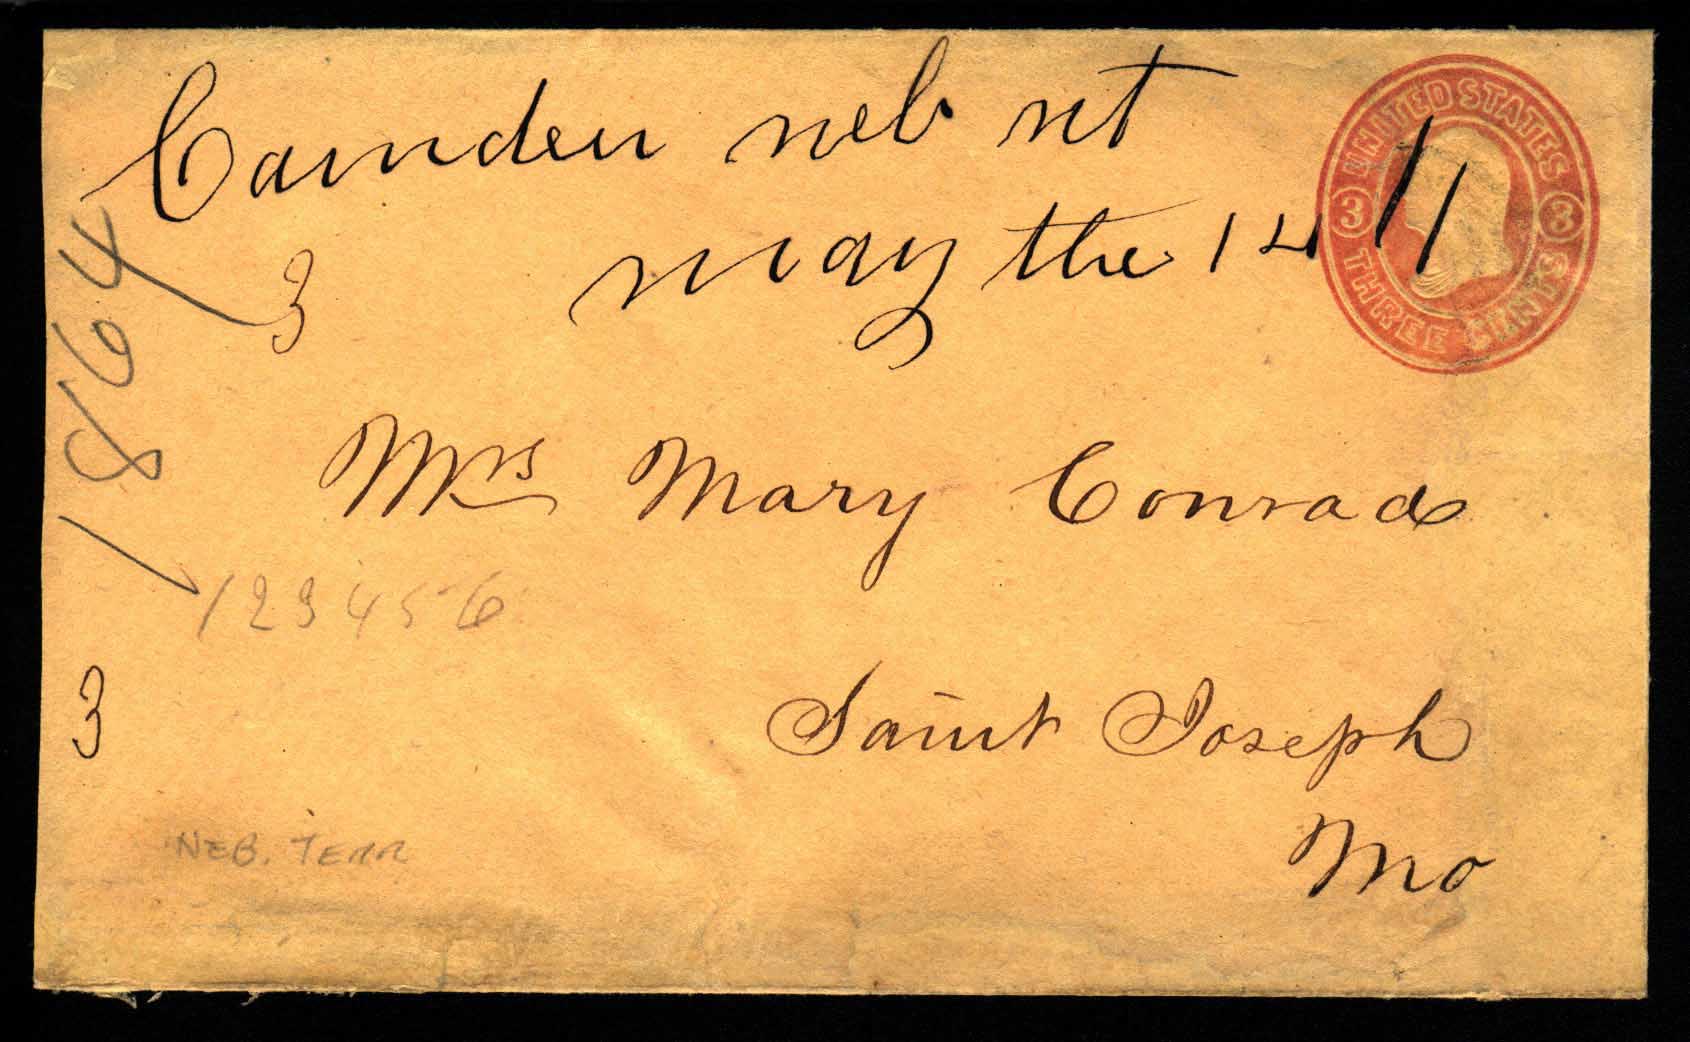 Camden neb nt
may the 14
UNITED STATES
3 3
THREE CENTS
1864
3
Mrs Mary Conrad
123456
Saint Joseph
3
Mo
NEB. TERR